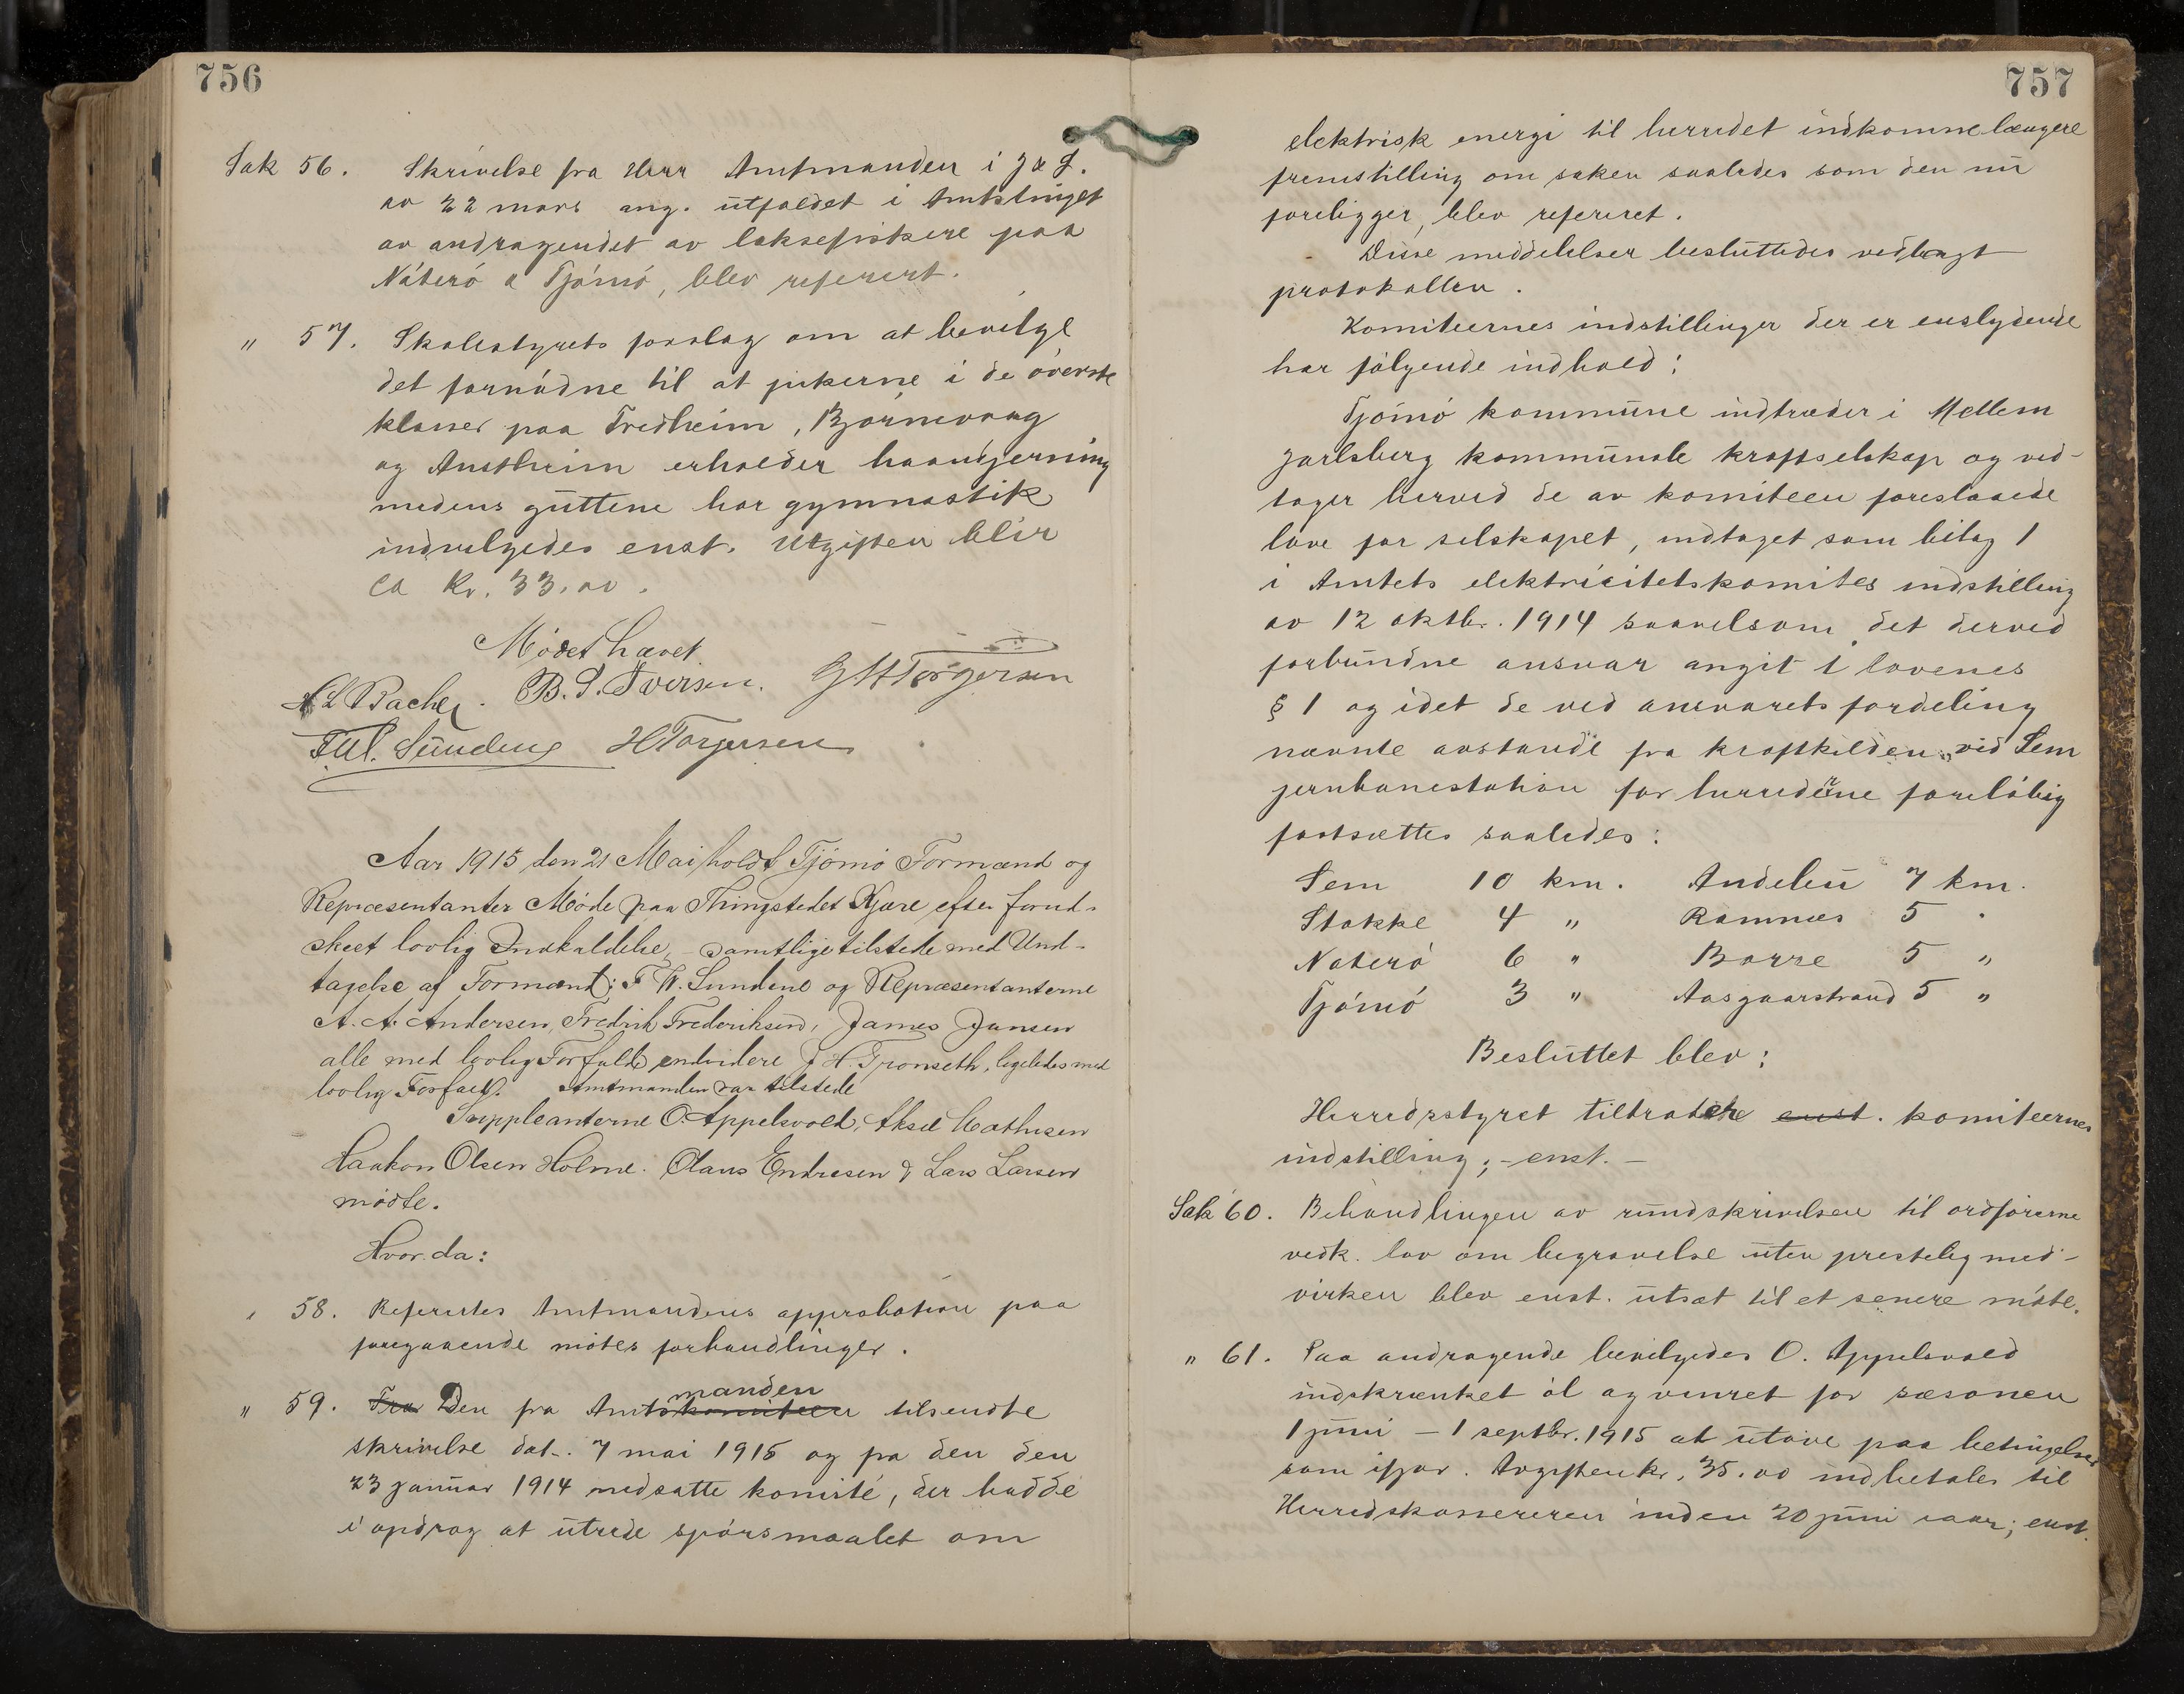 756
Sak 56. Skrivelse fra Herr Amtmanden i J & L.
av 22 mars ang. utfaldet i Amtstinget
av andragendet av laksefiskere paa
Nøterø & Tjømø, blev referert.
" 57. Skolestyrets forslag om at bevilge
det fornødne til at pikerne i de øverste
klasser paa Fredheim, Bjørnevaag
og Austheim erholder haandgjerning
medens guttene har gymnastik
indvilgedes enst. Utgiften blir
ca kr. 33.00.
Mødet hævet.
A L Bache. B. S. Iversen. J H Torgersen
F.W. Sundene H Torgersen
Aar 1915 den 21 Mai holdt Tjömö Formænd og
Repræsentanter Møde paa Thingstedet Kjære efter forud-
skeet lovlig Indkaldelse, – samtlige tilstede med Und-
tagelse af Formænd: F W. Sundene og Repræsentanterne
A. A. Andersen, Fredrik Frederiksen, James Jansen
alle med lovlig Forfald, endvidere J H. Tronseth, ligeledes med
lovlig Forfald. Amtmanden var tilstede
Suppleanterne O. Appelsvold, Aksel Mathisen
Haakon Olsen Holme. Olaus Endresen & Lars Larsen
mødte.
Hvor da:
" 58. Refertes Amtmandens approbation paa
foregaaende møtes forhandlinger.
" 59. Fra Den fra Amtskomiteen manden tilsendte
skrivelse dat. 7 mai 1915 og fra den den
23 januar 1914 nedsatte komité, der hadde
i opdrag at utrede spørsmaalet om
757
elektrisk energi til herredet indkomne længere
fremstilling om saken saaledes som den nu
foreligger, blev referert.
Disse meddelelser besluttedes vedlagt
protokollen.
Komiteernes indstillinger der er enslydende
har følgende indhold:
Tjømø kommune indtræder i Mellem
Jarlsberg kommunale kraftselskap og ved-
tager herved de av komiteen foreslaaede
love for selskapet, indtaget som bilag 1
i Amtets elektricitetskomites indstilling
av 12 oktbr. 1914 saavelsom det derved
forbundne ansvar angit i lovenes
§ 1 og idet de ved ansvarets fordeling
nævnte avstande fra kraftkilden ved Sem
jernbanestation for herrederne foreløbig
fastsættes saaledes:
Sem 10 km. Andebu 7 km.
Stokke 4 " Ramnes 5 "
Nøterø 6 " Borre 5 "
Tjømø 3 " Aasgaarstrand 5 "
Besluttet blev:
Herredsstyret tiltrædte enst. komiteernes
indstilling; – enst. –
Sak 60. Behandlingen av rundskrivelsen til ordførerne
vedk. lov om begravelse uten prestelig med-
virken blev enst. utsat til et senere møte.
" 61. Paa andragende bevilgedes O. Appelsvold
indskrænket øl og vinret for sæsonen
1 juni – 1 septbr. 1915 at utøve paa betingelser
som ifjor. Avgiften kr. 35.00 indbetales til
Herredskassereren inden 20 juni iaar; enst.